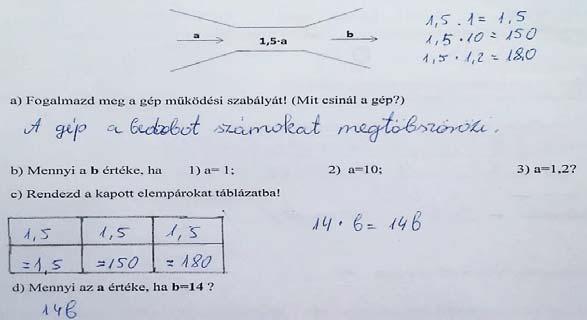 a
1,5·a
b
1,5 . 1 = 1,5
1,5 · 10 = 150
1,5 · 1,2 = 180
a) Fogalmazd meg a gép működési szabályát! (Mit csinál a gép?)
A gép a számokat megtöbszörözi.
b) Mennyi a b értéke, ha 1) a= 1; 2) a=10; 3) a=1,2?
c) Rendezd a kapott elempárokat táblázatba!
1,5 1,5 1,5
=1,5 =150 =180
14 · b = 14b
d) Mennyi az a értéke, ha b=14 ?
14b